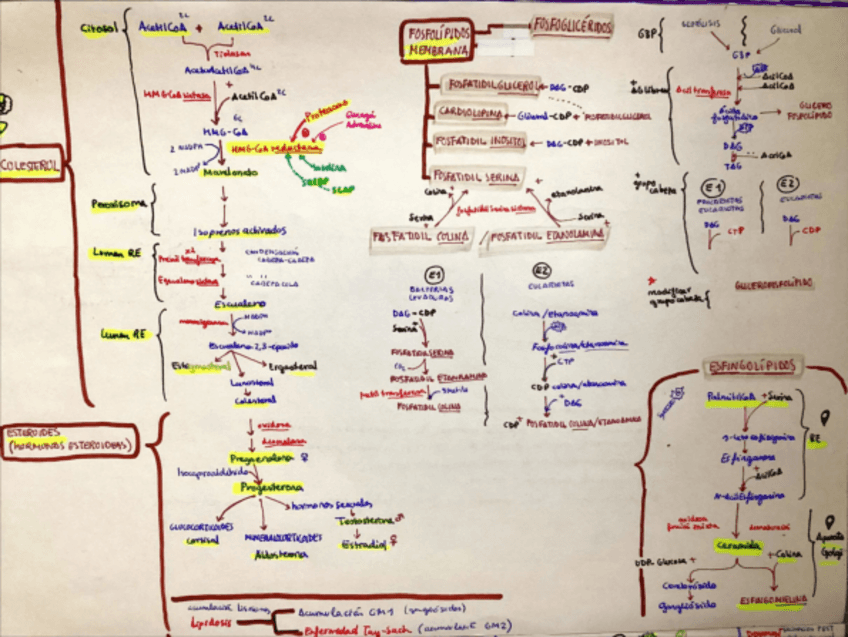 Citosol
AcetilCoA 2C + AcetilCoA 2C
Tiolasa
AcetoAcetilCoA 4C
HMG-CoA sintasa
+ AcetilCoA 2C
6C
HMG-CoA
2 NADPH
2 NADP
HMG-CoA reductasa
Proteasas
Glucagón
Adrenalina
Insulina
SREBP
SCAP
Mevalonato
COLESTEROL
Peroxisoma
Isoprenos activados
Lumen RE
x2
Prenil transferasa
CONDENSACIÓN
CABEZA-CABEZA
Escualeno sintasa
CABEZA COLA
Escualeno
Lumen RE
monooxigenasa
NADPH
NADP+
Escualeno 2,3-epóxido
Estigmasterol
Ergosterol
Lanosterol
Colesterol
ESTEROIDES
(HORMONAS ESTEROIDEAS)
oxidasa
desmolasa
Pregnenolona ♀
Isocaproaldehído
Progesterona
GLUCOCORTICOIDES
Cortisol
MINERALOCORTICOIDES
Aldosterona
hormonas sexuales
Testosterona ♂
Estradiol ♀
Lipidosis
Acumulación GM1 (gangliósidos)
Enfermedad Tay-Sach (acumulación GM2)
FOSFOLÍPIDOS
MEMBRANA
FOSFOGLICÉRIDOS
FOSFATIDIL GLICEROL
DAG-CDP
CARDIOLIPINA
Glicerol-CDP + FOSFATIDILGLICEROL
FOSFATIDIL INOSITOL
DAG-CDP + INOSITOL
FOSFATIDIL SERINA
Colina
+ etanolamina
Serina
fosfatidil serina sintasa
Serina
FOSFATIDIL COLINA / FOSFATIDIL ETANOLAMINA
E1
BACTERIAS
LEVADURAS
DAG-CDP
Serina
FOSFATIDIL SERINA
CO2
FOSFATIDIL ETANOLAMINA
metil transferasa
3 metilo
FOSFATIDIL COLINA
E2
EUCARIOTAS
Colina/Etanolamina
Fosfocolina/Etanolamina
+ CTP
CDP colina/etanolamina
+ DAG
CDP + FOSFATIDIL COLINA/ETANOLAMINA
G3P
GLUCÓLISIS
Glicerol
G3P
+ AG libres
Acil transferasa
AcilCoA
AcilCoA
Ácido
fosfatídico
GLICERO
FOSFOLÍPIDO
DAG
AcilCoA
TAG
+ grupo
cabeza
E1
PROCARIOTAS
EUCARIOTAS
DAG
CTP
E2
EUCARIOTAS
DAG
CDP
modificar
grupo cabeza
GLICEROFOSFOLÍPIDO
ESFINGOLÍPIDOS
PalmitilCoA
+ Serina
3-cetoesfinganina
Esfinganina
+ AcilCoA
N-acilEsfinganina
RE
desaturación
Ceramida
Aparato
Golgi
UDP-Glucosa +
+ Colina
Cerebrósido
Gangliósido
ESFINGOMIELINA